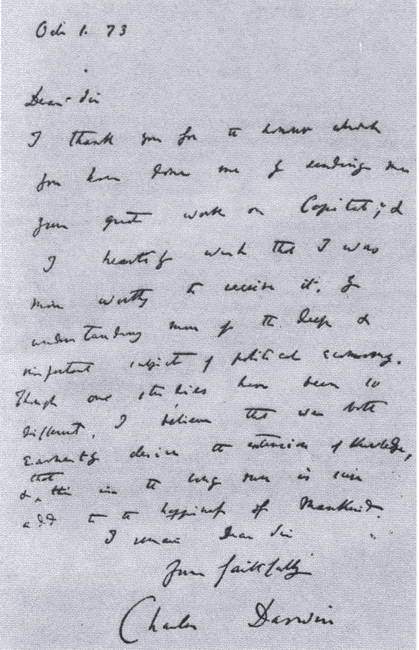 Oct 1. 73
Dear Sir
I thank you for the honour which
you have done me by sending me
your great work on Capital; &
I heartily wish that I was
more worthy to receive it, by
understanding more of the deep &
important subject of political economy.
Though our studies have been so
different, I believe that we both
earnestly desire the extension of Knowledge,
that
& this in the long run is sure
add to the happiness of Mankind.
I remain Dear Sir
Yours faithfully
Charles Darwin